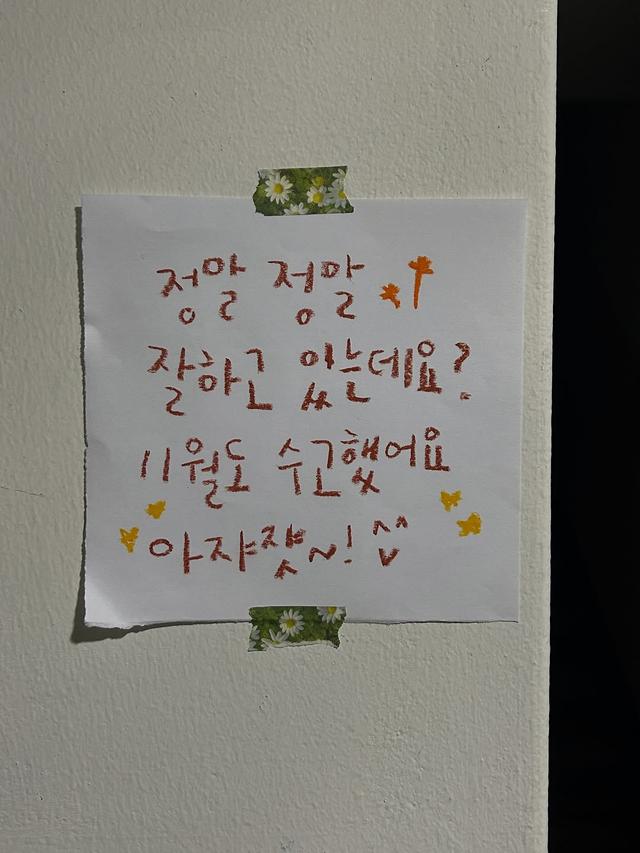 정말 정말
잘하고 있는데요?
11월도 수고했어요
아쟈쟛~! ^v^